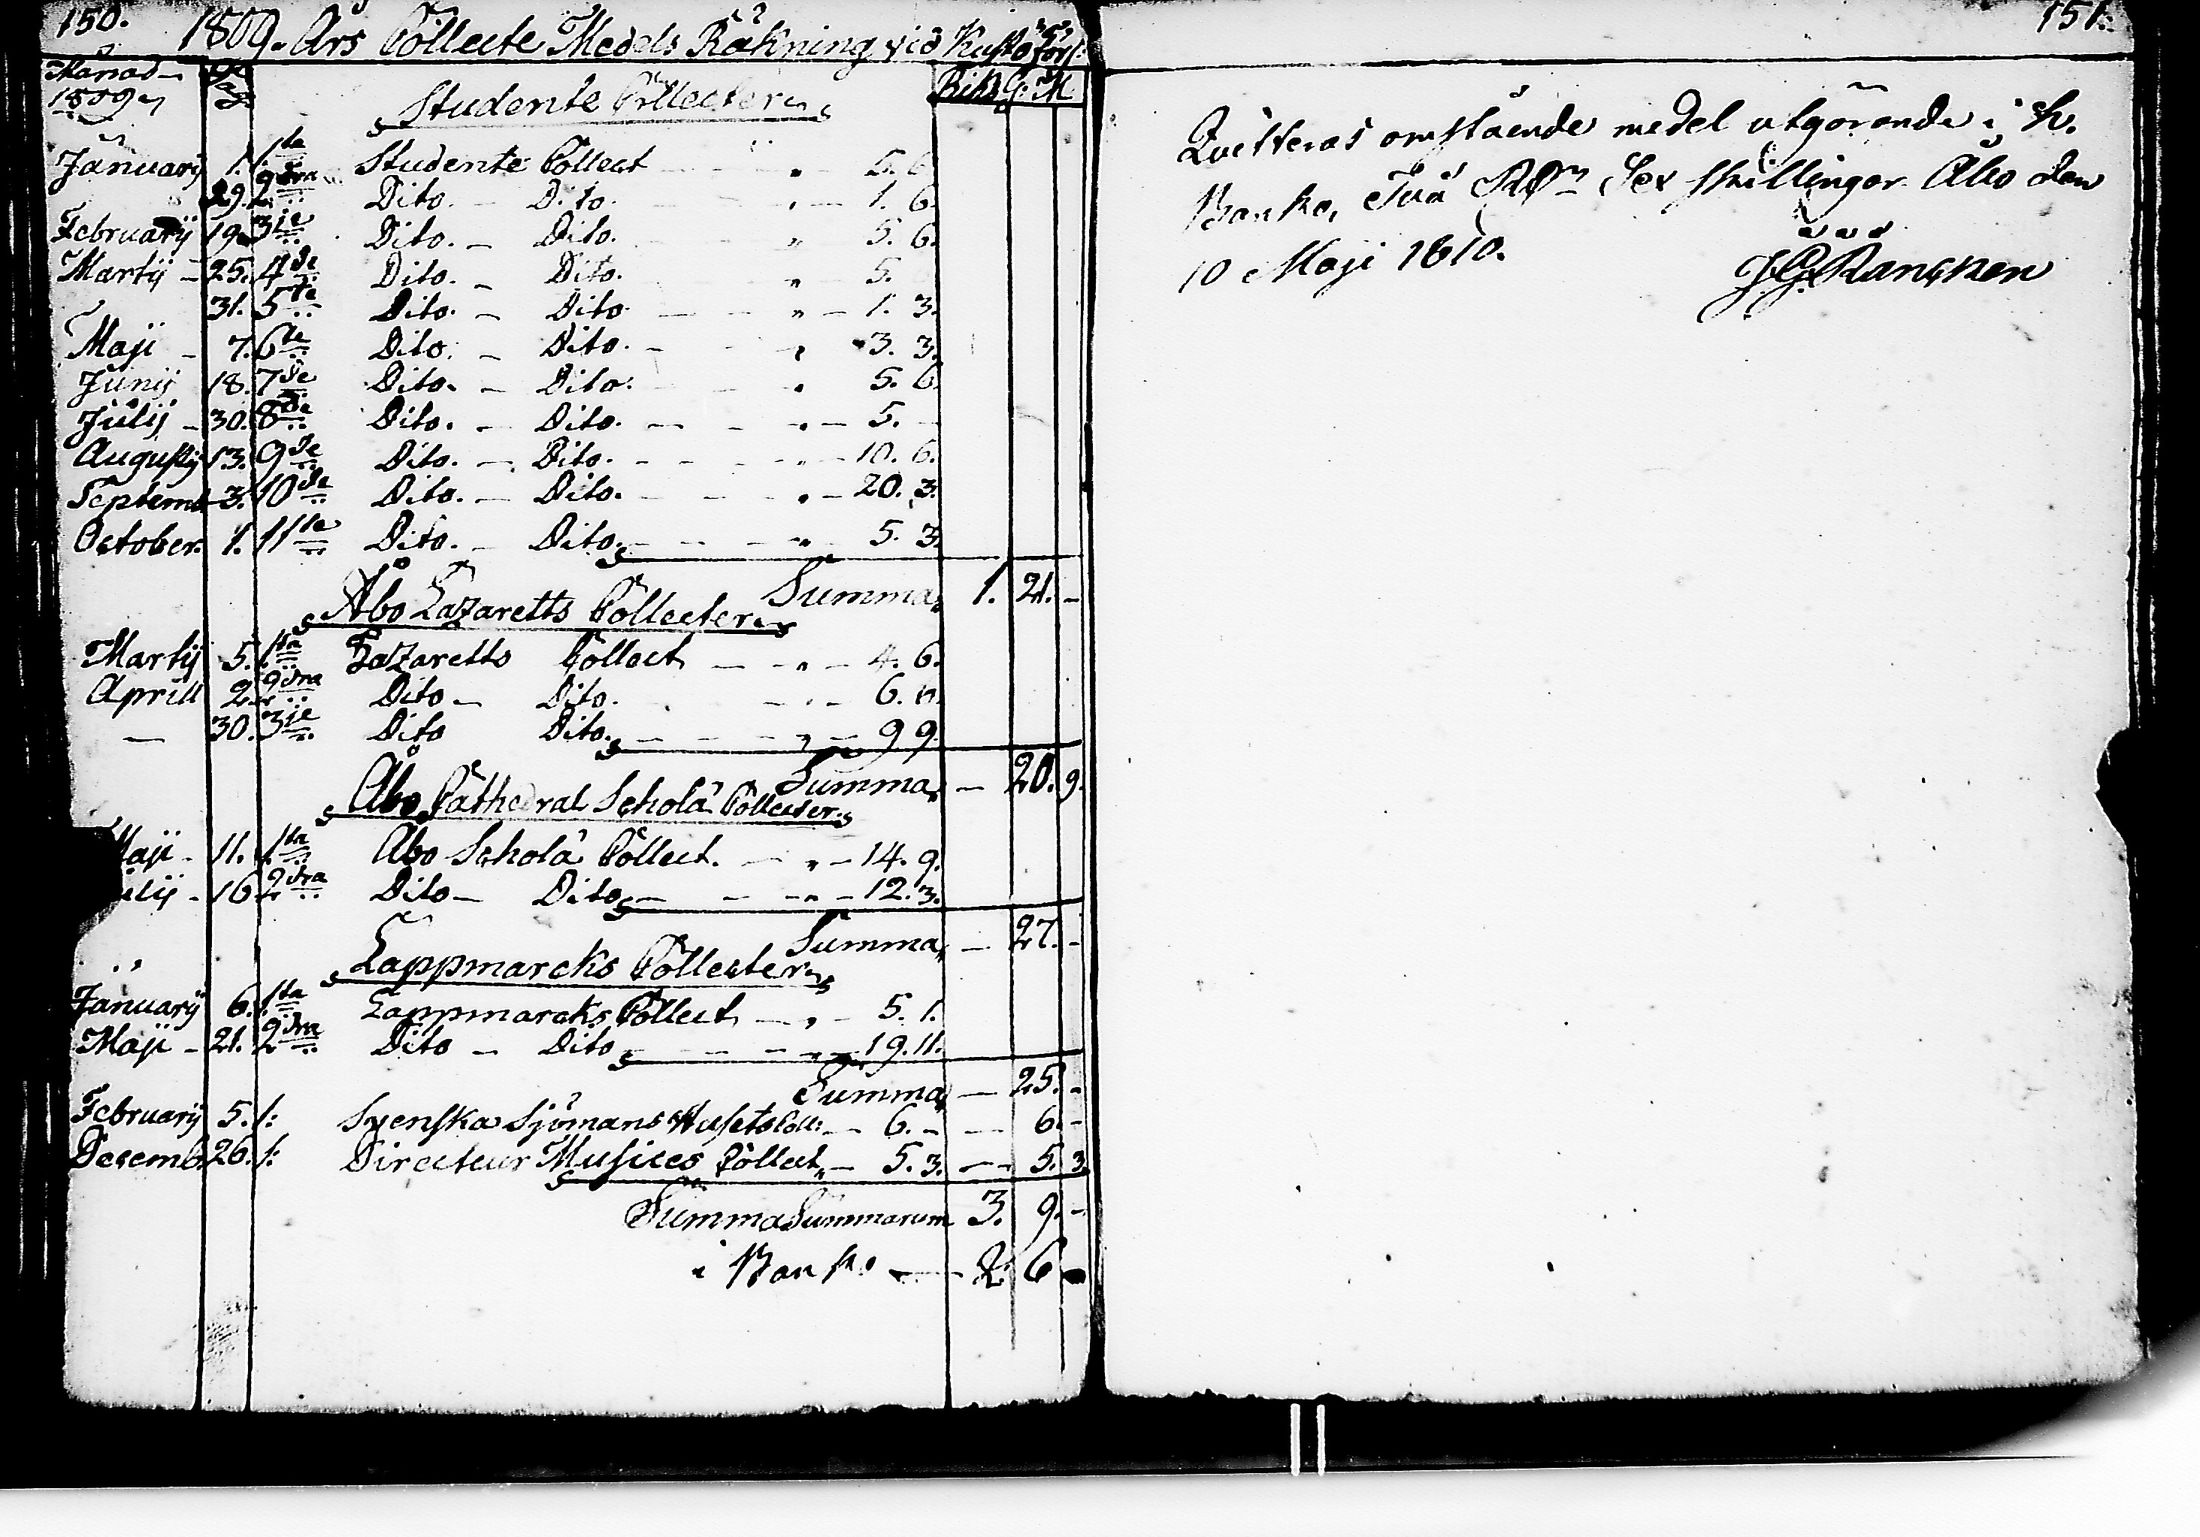 150.
1809. Års Collecte Medels Räkning vid Kustö förs:
Månad Dag Riks G: M
1809
Studente Collecter
January 1. 1sta Studente Collect " 5. 6
29. 2dra Dito. Dito. 1. 6.
Februarij 19. 3je Dito. Dito. " 5. 6.
Martij 25. 4de Dito. Dito. " 5.
31. 5te Dito. Dito. " 1. 3.
Maji 7. 6te Dito. Dito. " 3. 3.
Junij 18. 7de Dito. Dito. " 5. 6.
Julij 30. 8de Dito. Dito. " 5. -
Augustij 13. 9de Dito. Dito. " 10. 6.
Septemb 3. 10de Dito. Dito. " 20. 3.
October. 1. 11te Dito. Dito. " 5. 3.
Summa 1. 21. -
Åbo Lazaretts Collecter
Martij 5. 1sta Lazaretts Collect " 4. 6.
Aprill 2. 2dra Dito Dito. 6. "
— 30. 3je Dito Dito. " 9 9.
Summa - 20. 9.
Åbo Cathedral Schola Collecter
Maji 11. 1sta Åbo Schola Collect. " 14. 9.
ulij 16. 2dra Dito Dito " 12. 3.
Summa - 27. -
Lappmarcks Collecter
Januarij 6. 1sta Lappmarcks Collect " 5. 1.
Maji 21. 2dra Dito Dito " 19. 11.
Summa - 25. -
Februarij 5. 1: Svenska Sjömans Husets Coll: 6. - - 6. -
Decemb. 26. 1: Directeur Musices Collect 5. 3. - 5. 3.
Summa Summarum 3. 9. -
i Banko 2. 6 -
151.
Qvitteras omstående medel utgörande i
Banko, Två RDr Sex skillingar Åbo den
10 Maji 1810.
J.G. Rancken